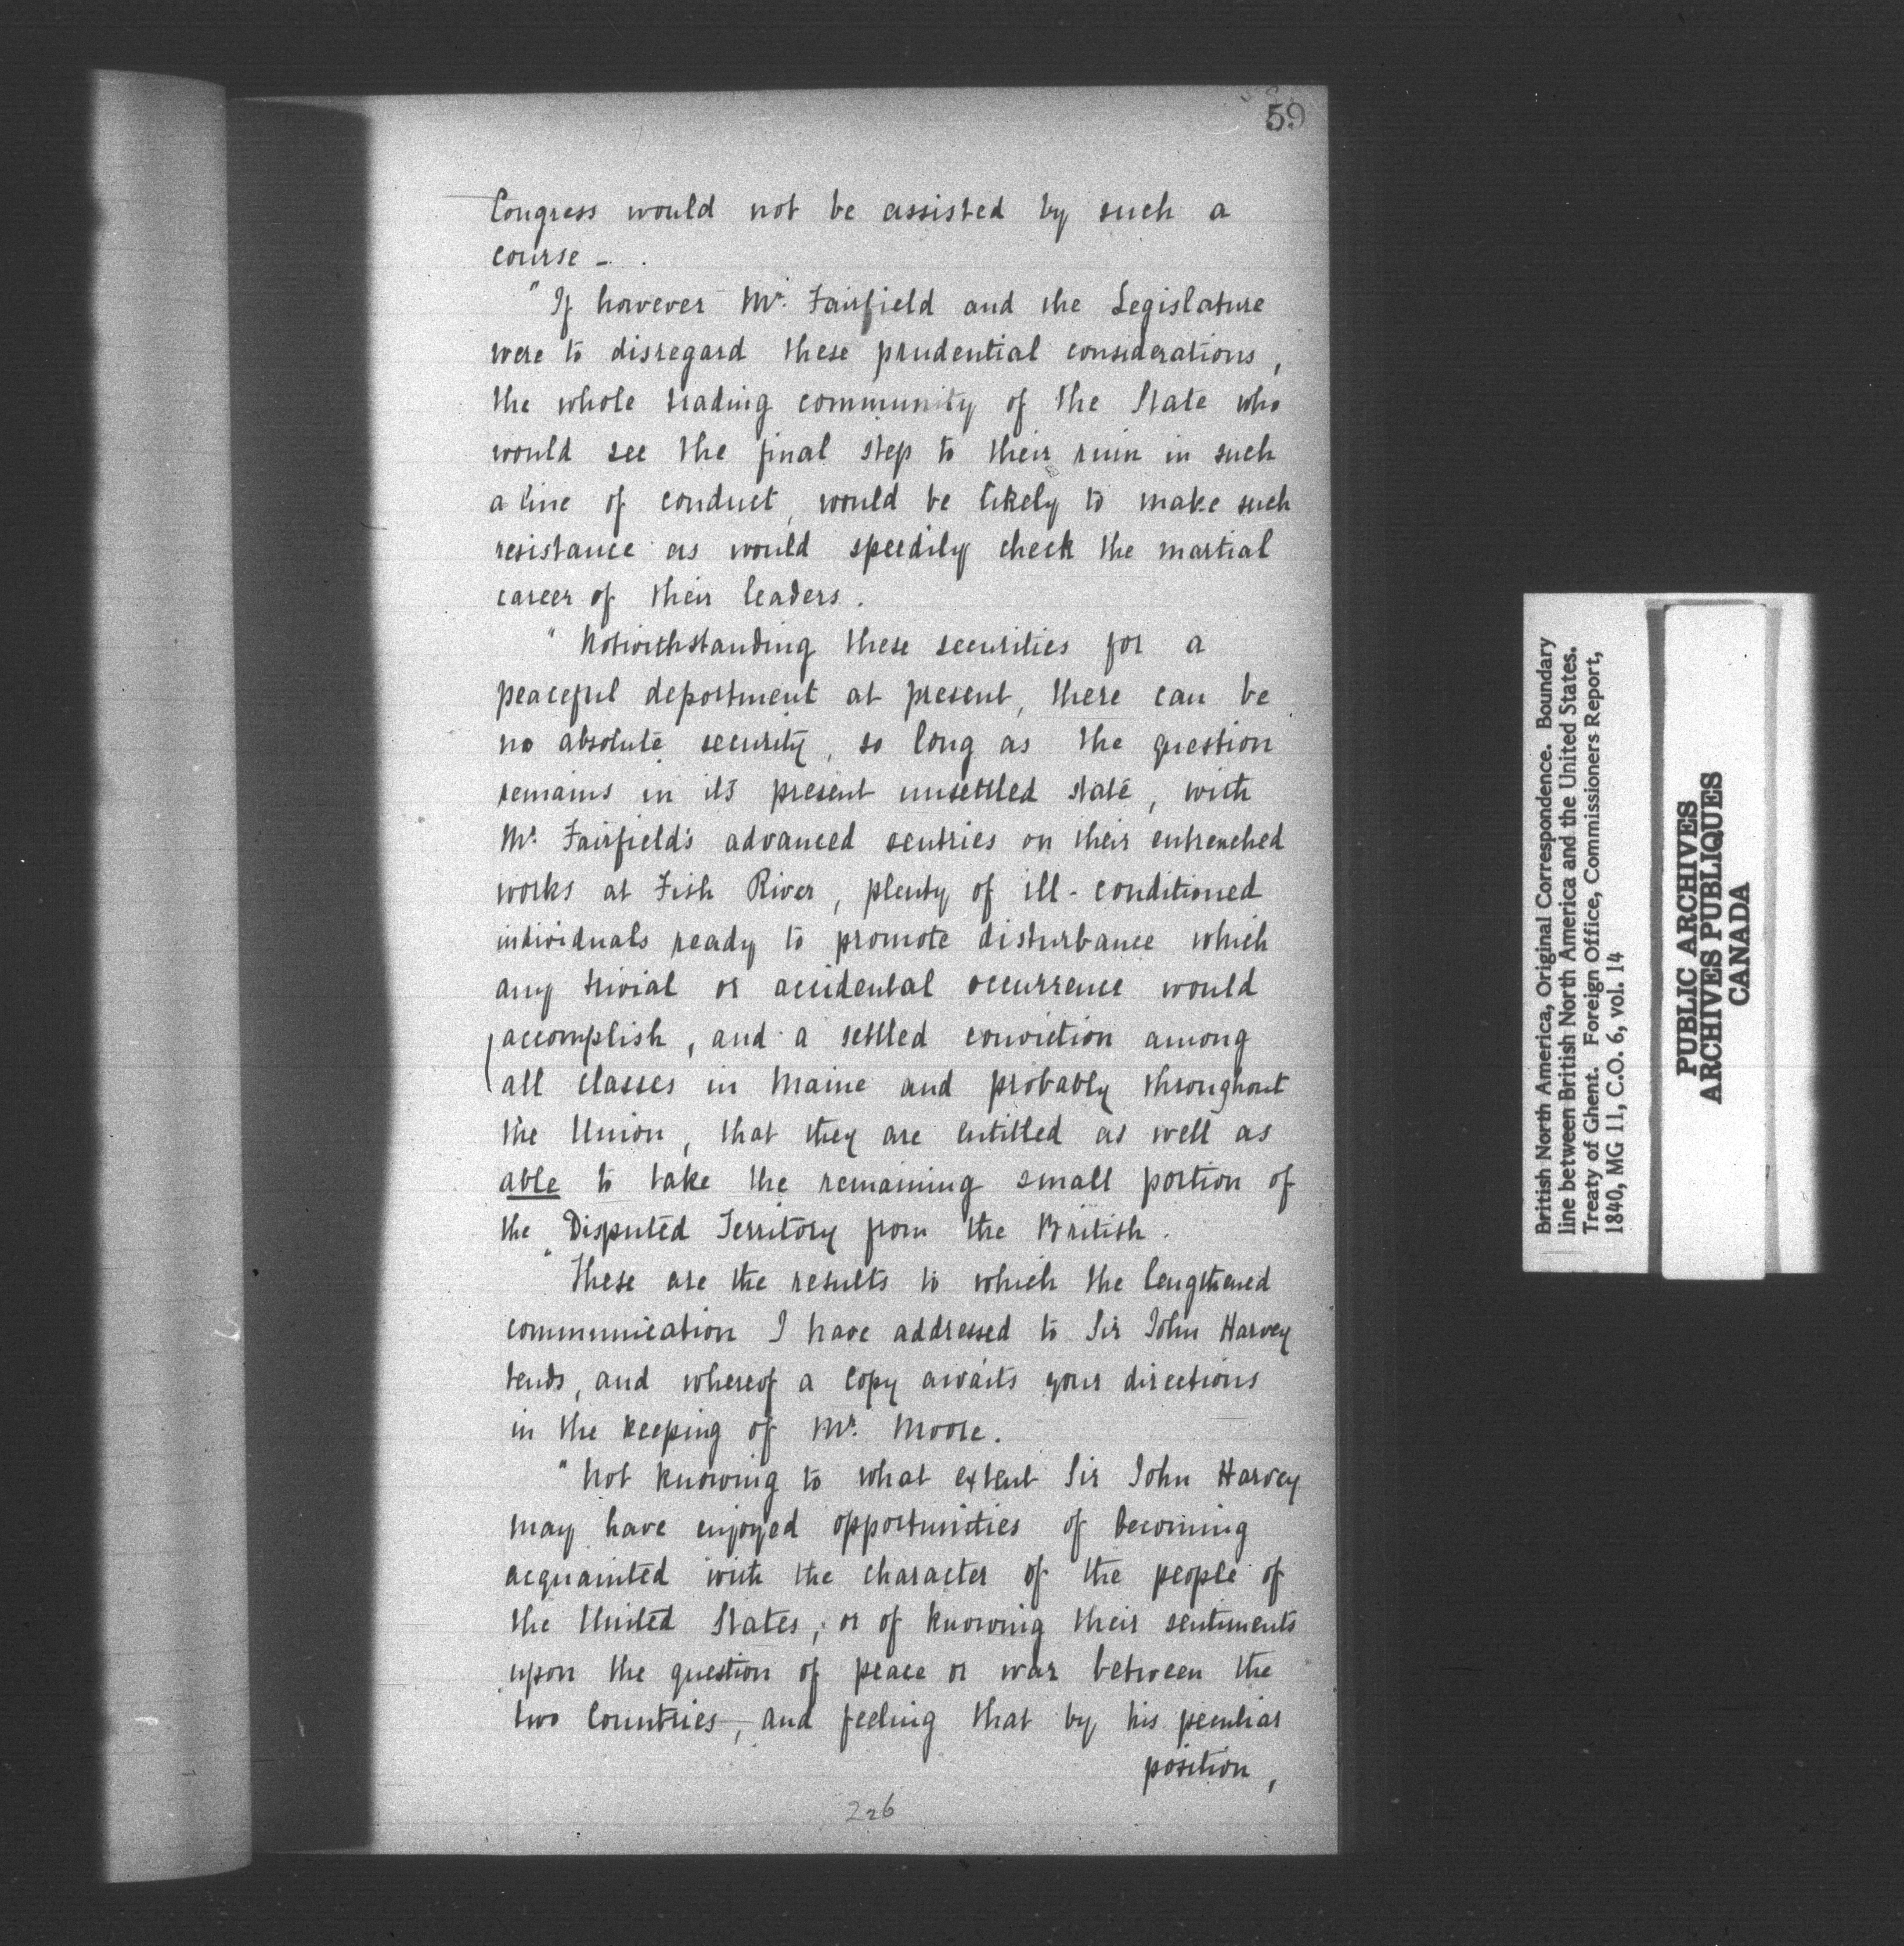 59
Congress would not be assisted by such a
course - .
"If however Mr. Fairfield and the Legislature
were to disregard these prudential considerations,
the whole trading community of the State who
would see the final step to their ruin in such
a line of conduct, would be likely to make such
resistance as would speedily check the martial
career of their leaders.
" Notwithstanding these securities for a
peaceful deportment at present, there can be
no absolute security, so long as the question
remains in its present unsettled state, with
Mr. Fairfield's advanced sentries on their entrenched
works at Fish River, plenty of ill-conditioned
individuals ready to promote disturbance which
any trivial or accidental occurrence would
accomplish, and a settled conviction among
all classes in Maine and probably throughout
the Union, that they are entitled as well as
able to take the remaining small portion of
the Disputed Territory from the British.
"These are the results to which the lengthened
communication I have addressed to Sir John Harvey
tends, and whereof a Copy awaits your directions
in the keeping of Mr. Moore.
"Not knowing to what extent Sir John Harvey
may have enjoyed opportunities of becoming
acquainted with the character of the people of
the United States, or of knowing their sentiments
upon the question of peace or war between the
two Countries, and feeling that by his peculiar
position,
226
British North America, Original Correspondence. Boundary
line between British North America and the United States.
Treaty of Ghent. Foreign Office, Commissioners Report,
1840, MG 11, C.O. 6, vol. 14
PUBLIC ARCHIVES
ARCHIVES PUBLIQUES
CANADA